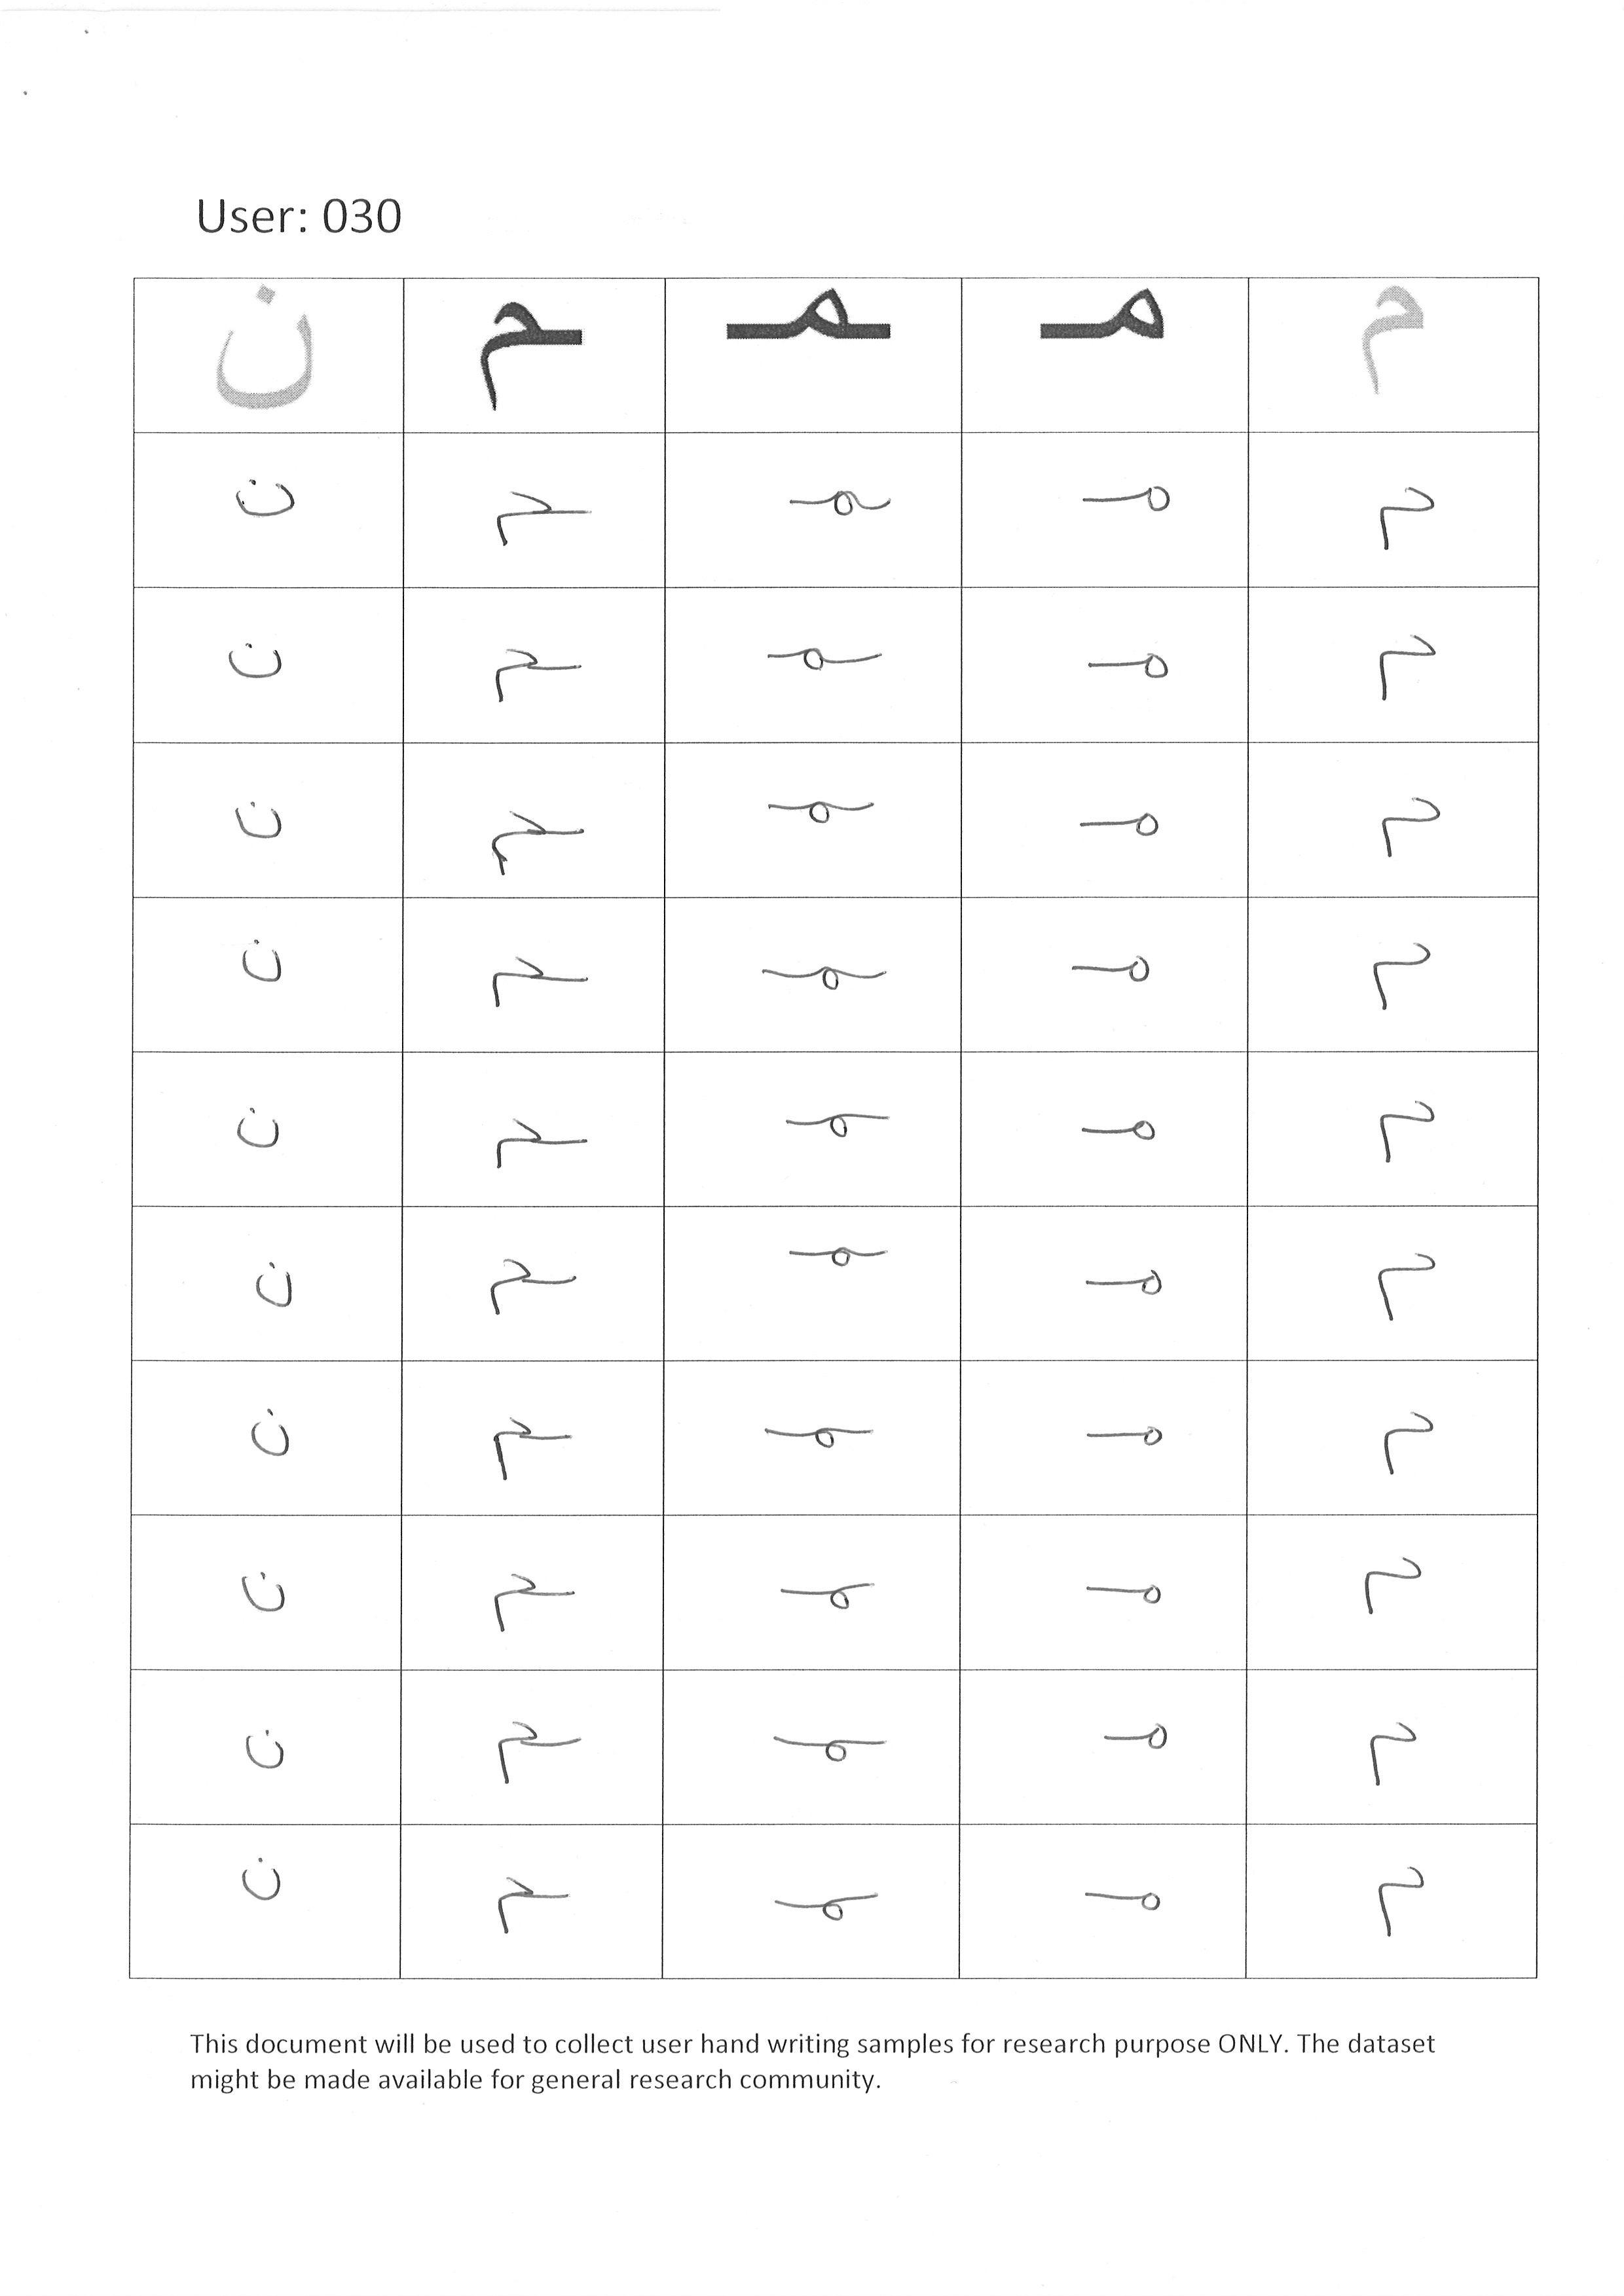 User: 030
م مـ ـمـ ـم ن
م مـ ـمـ ـم ن
م مـ ـمـ ـم ن
م مـ ـمـ ـم ن
م مـ ـمـ ـم ن
م مـ ـمـ ـم ن
م مـ ـمـ ـم ن
م مـ ـمـ ـم ن
م مـ ـمـ ـم ن
م مـ ـمـ ـم ن
م مـ ـمـ ـم ن
This document will be used to collect user hand writing samples for research purpose ONLY. The dataset
might be made available for general research community.